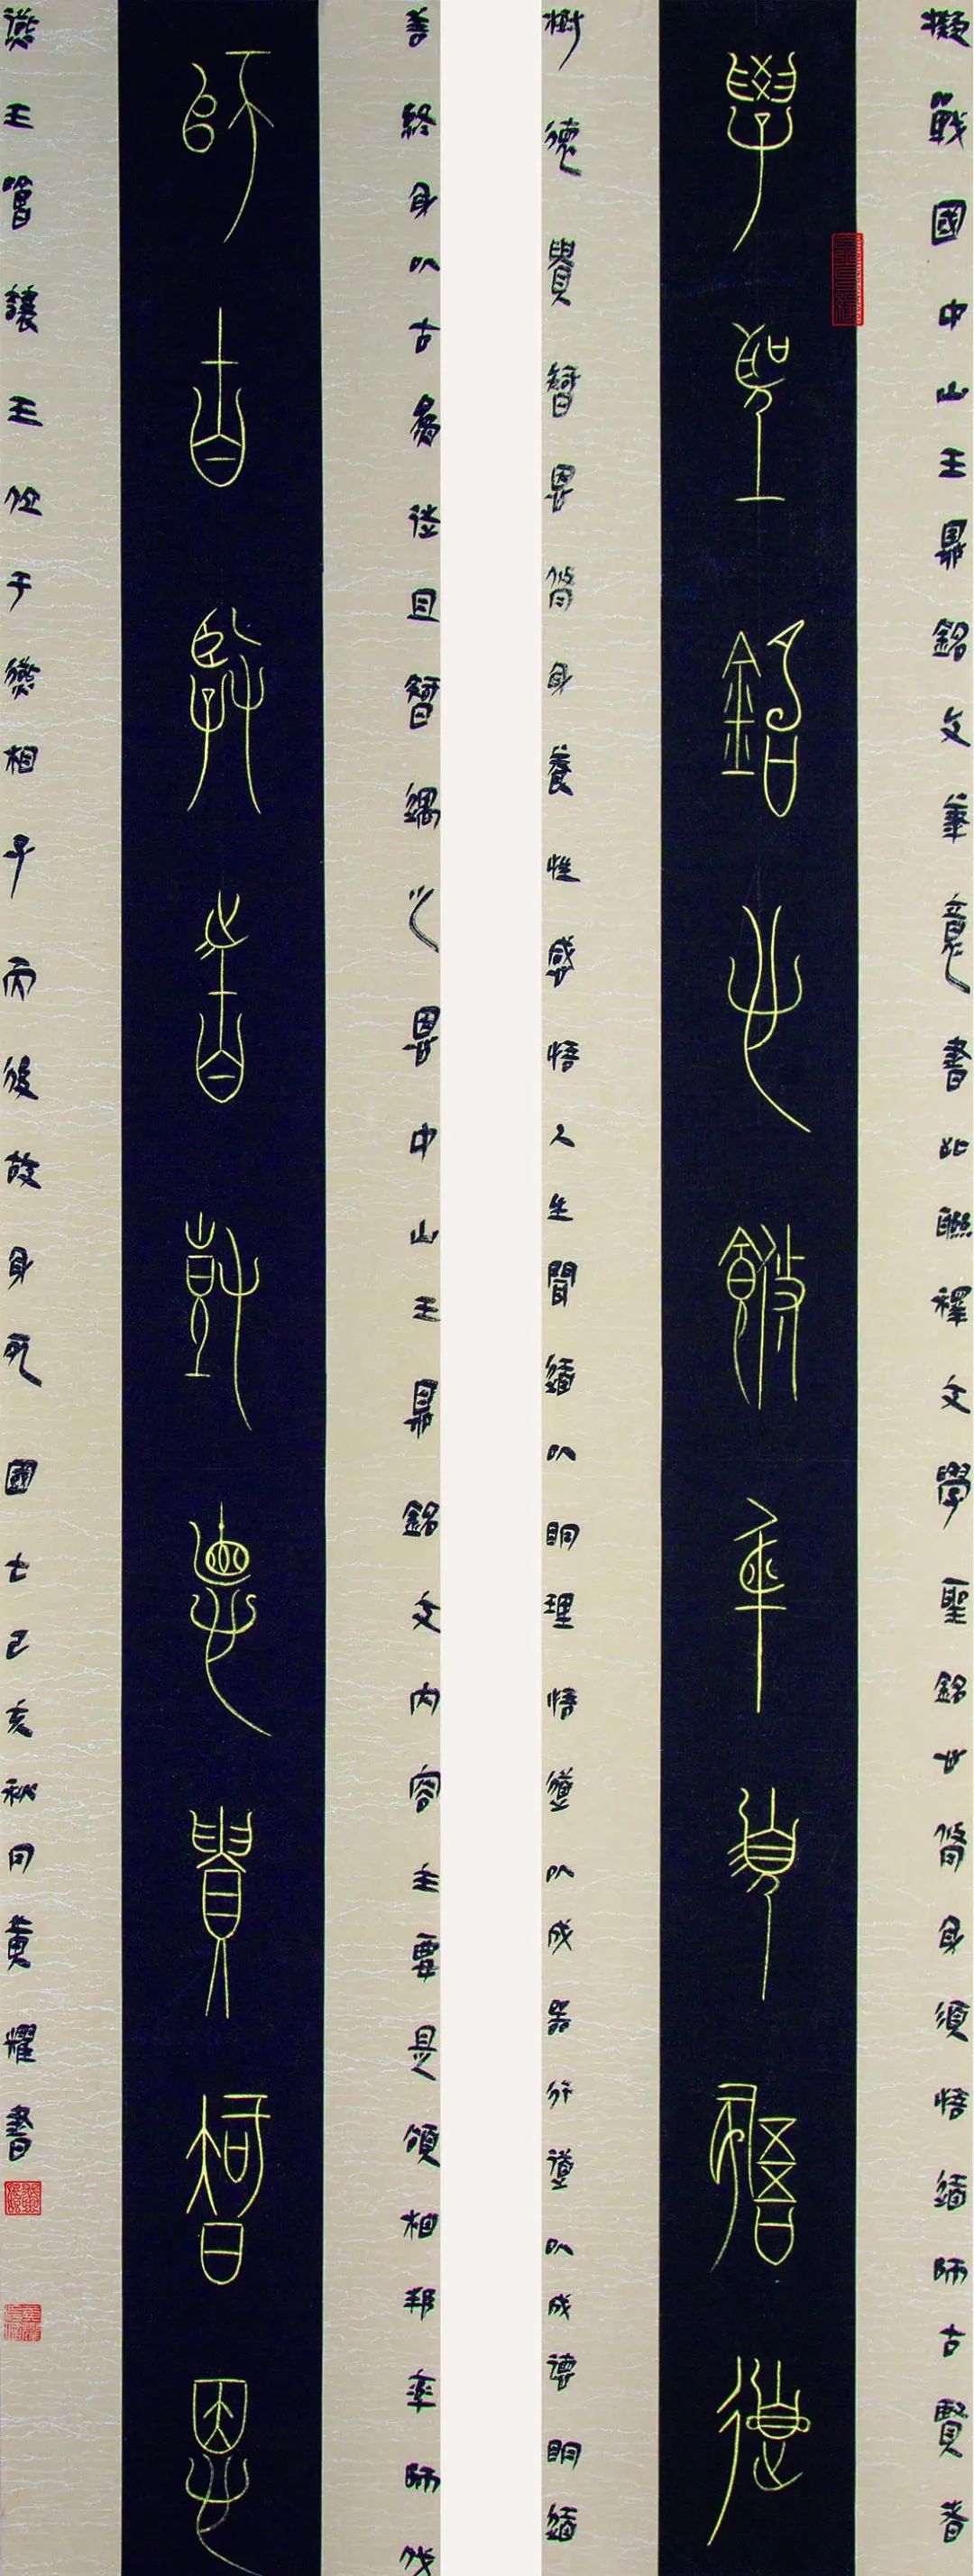 擬戰國中山王鼎銘文筆意書此聯釋文學聖銘心脩身須悟師古賢者
學聖銘心脩身須悟德
樹德貴智恩脩身養性感悟人生聞以明理悟道以成器行道以成德明
善終身以古為從且智謂之恩中山王鼎銘文內容主要是頌相邦率師伐
師古賢者樹德貴智恩
燕王噲讓王位于燕相子而後故身死國亡己亥秋月黃耀書